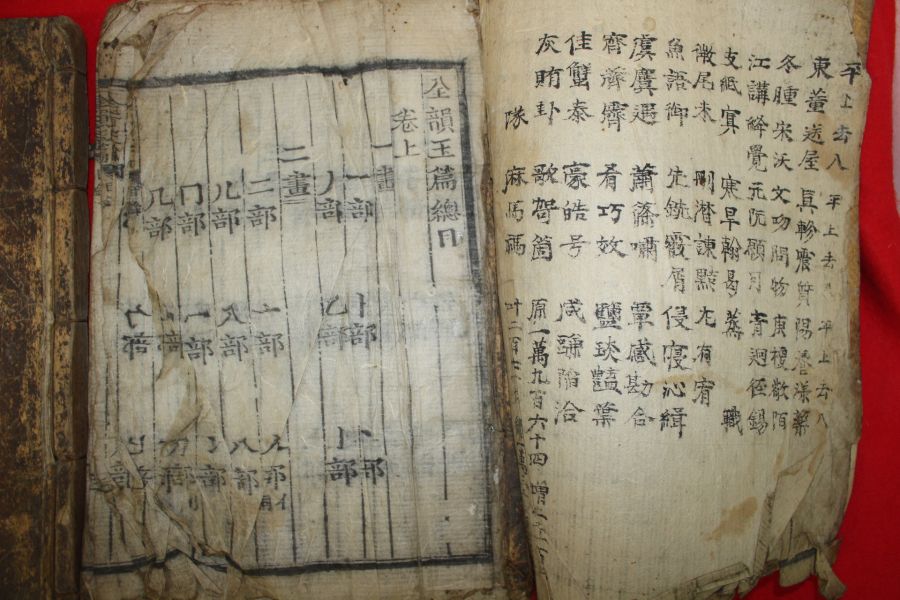 平上去入 平上去入 平上去入
東董送屋 真軫震質 陽養漾藥
冬腫宋沃 文吻問物 庚梗敬陌
江講絳覺 元阮願月 青迥徑錫
支紙寘 寒旱翰曷 蒸 職
微尾未 刪潸諫黠 尤有宥
魚語御 先銑霰屑 侵寢沁緝
虞麌遇 蕭篠嘯 覃感勘合
齊薺霽 肴巧效 鹽琰豔葉
佳蟹泰 豪皓号 咸豏陷洽
灰賄卦 歌哿箇 原一萬九百六十四 增
隊 麻馬禡 叶二百
全韻玉篇總目
卷上
一畫
一部 丨部 丶部
丿部 乙部 亅部
二畫
二部 亠部 人部
儿部 入部 八部
冂部 冖部 冫部
几部 凵部
勹部 匕部